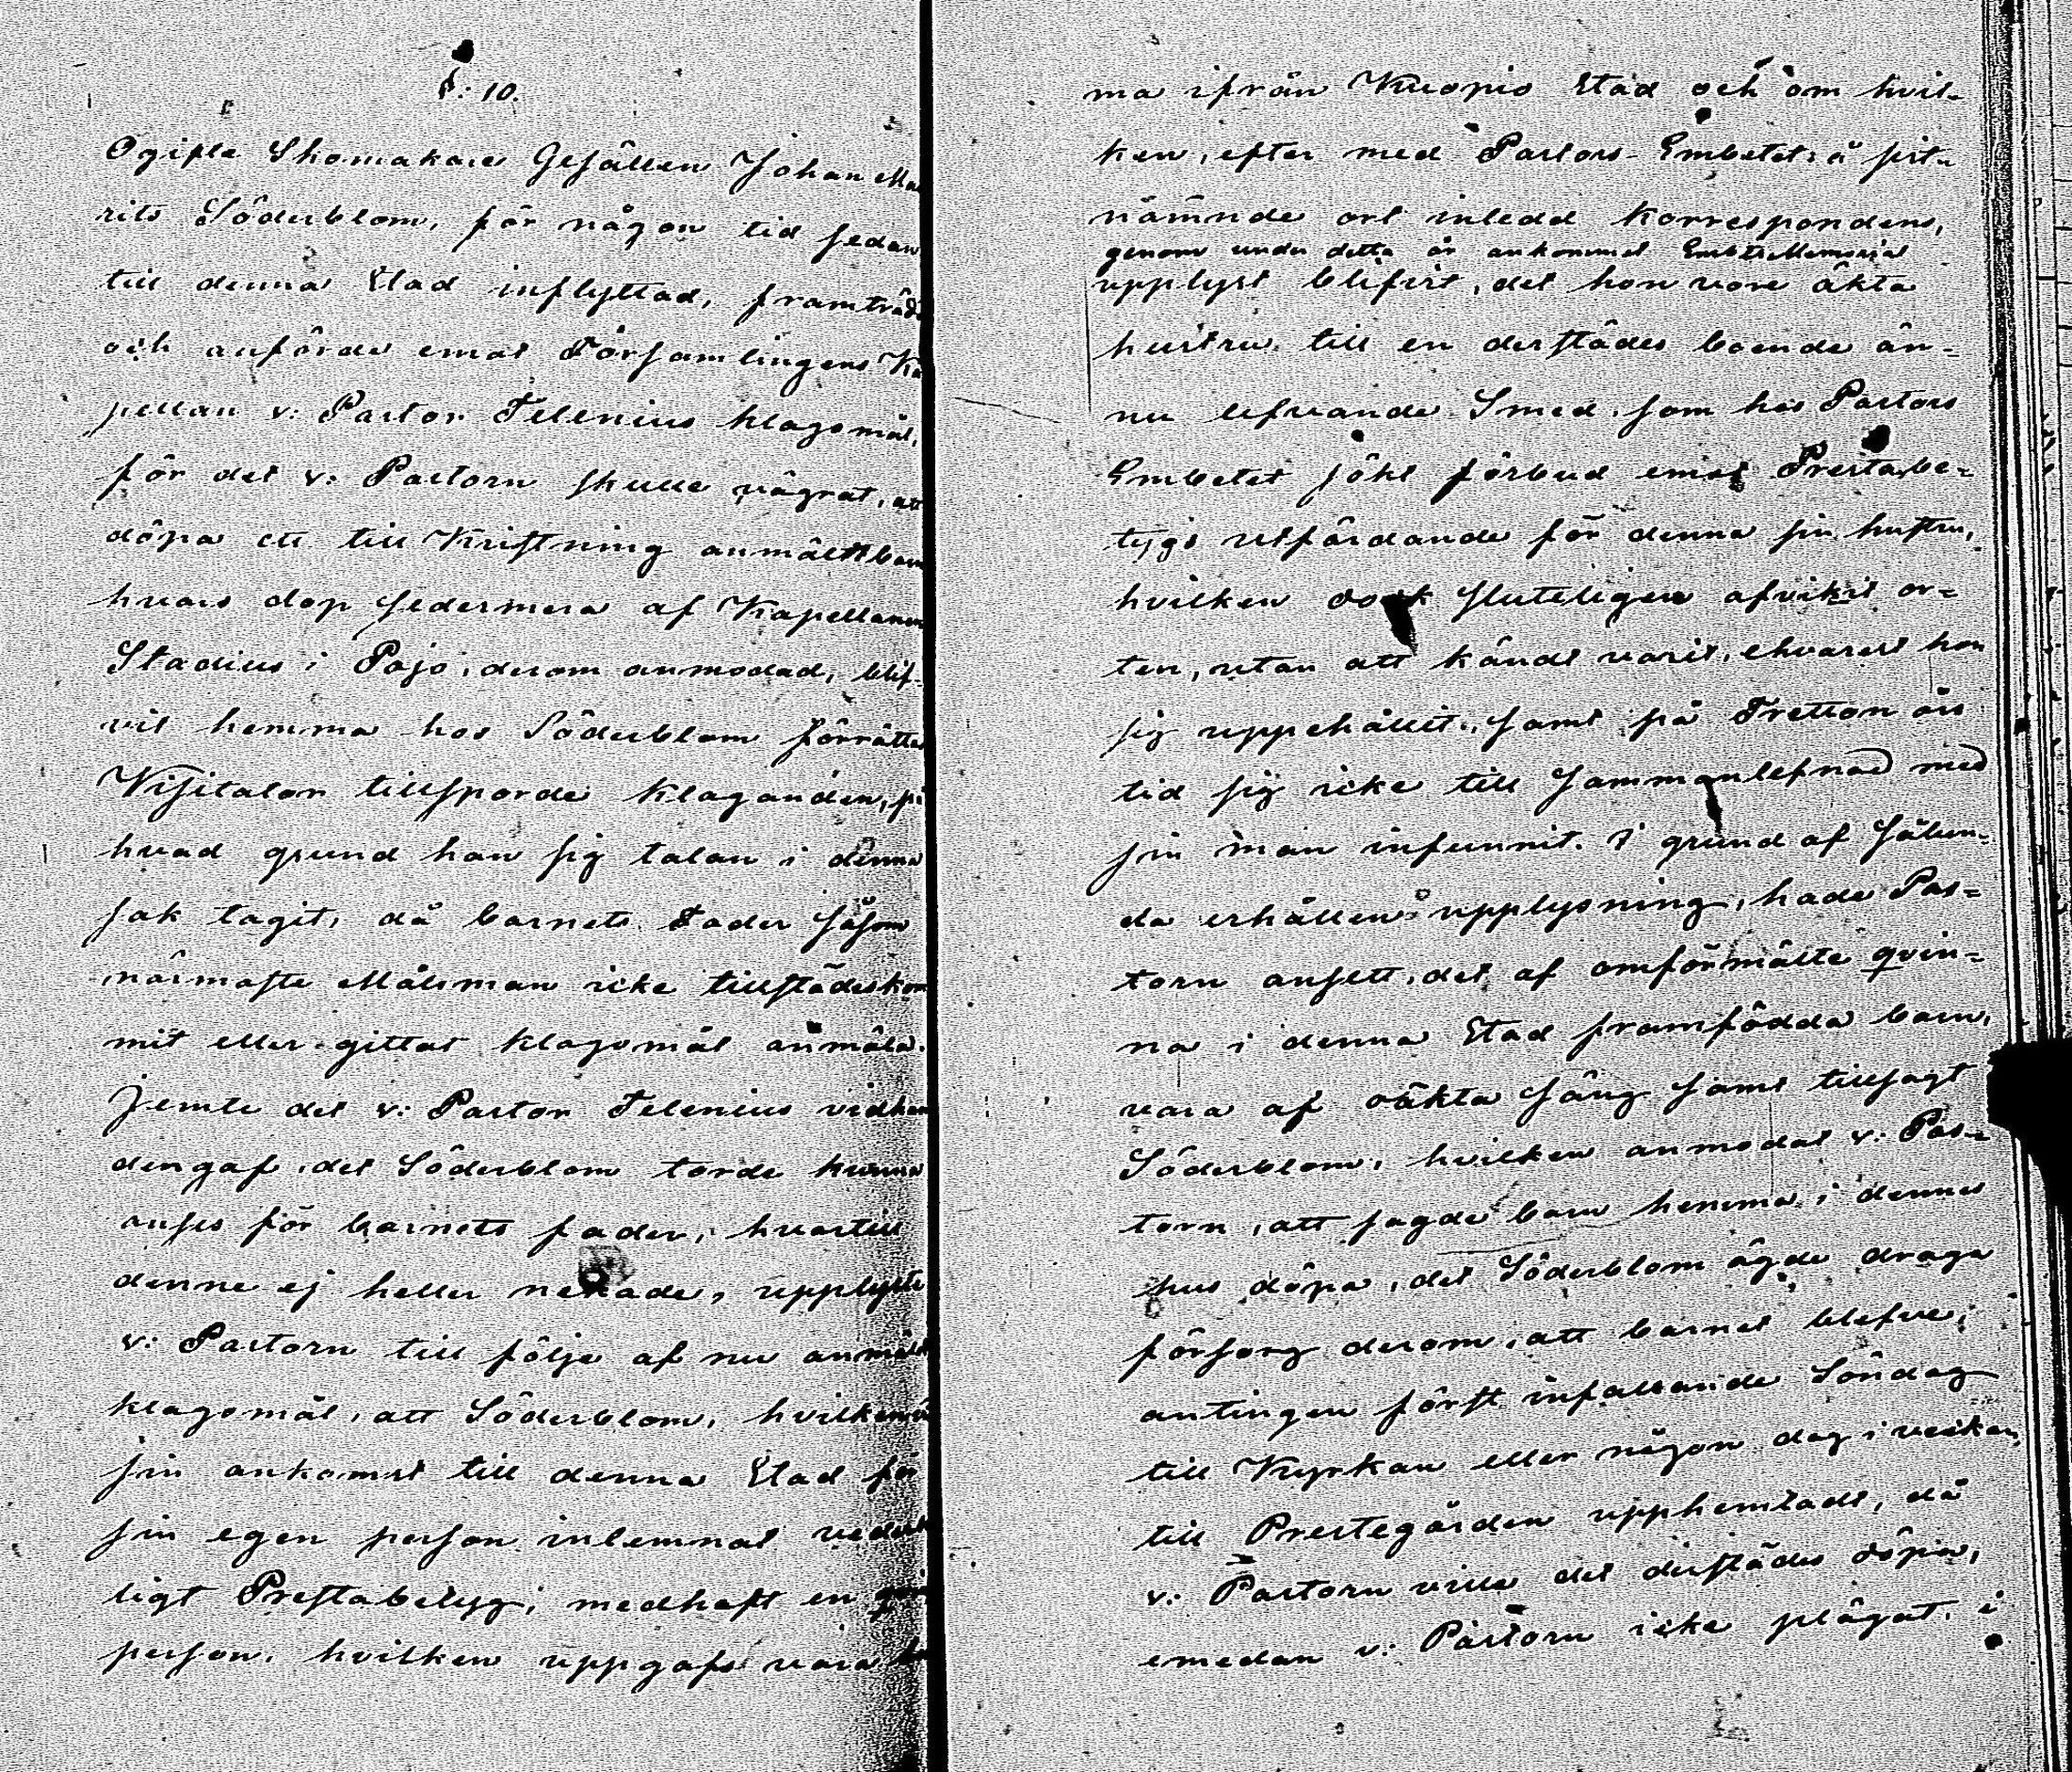 §: 10.
Ogifte Skomakare Gesällen Johan Mau
rits Söderblom, för någon tid sedan
till denna Stad inflyttad, framträdde
och anförde emot Församlingens Ka
pellan v: Pastor Telenius klagomål,
för det v: Pastorn skulle vägrat, att
döpa ett till Kristning anmäldt barn
hvars dop sedermera af Kapellanen
Stadius i Pojo, derom anmodad, blif-
vit hemma hos Söderblom förrättadt
Visitator tillsporde klaganden, på
hvad grund han sig talan i denna
sak tagit, då barnets Fader såsom
närmaste Målsman icke tillstädeskom
mit eller gittat klagomål anmäla.
Jemte det v: Pastor Telenius vidhan
dengaf, det Söderblom torde kunna
anses för barnets fader, hvartill
denne ej heller nekade, upplyste
v: Pastorn till följe af nu anmäldt
klagomål, att Söderblom, hvilken vid
sin ankomst till denna Stad för
sin egen person inlemnat veder
ligt Prestabetyg, medhaft en
person, hvilken uppgafs vara
ma ifrån Kuopio Stad och om hvil-
ken, efter med Pastors-Embetet å sist-
nämnde ort inledd korrespondens,
genom under detta år ankommet Embets Memorial
upplyst blifvit, det hon vore äkta
hustru till en derstädes boende än-
nu lefvande Smed, som hos Pastors
Embetet sökt förbud emot Prestabe-
tygs utfärdande för denna sin hustru,
hvilken dock sluteligen afvikit or-
ten, utan att kändt varit, ehvarest hon
sig uppehållit, samt på Tretton års
tid sig icke till Sammanlefnad med
sin man infunnit. I grund af sålun-
da erhållen upplysning, hade Pas-
torn ansett, det af omförmälte qvin-
na i denna Stad framfödda barn,
vara af oäkta säng samt tillsagt
Söderblom, hvilken anmodat v: Pas-
torn, att sagde barn hemma i dennes
hus döpa, det Söderblom ägde draga
försorg derom, att barnet blefve,
antingen först infallande Söndag
till Kyrkan eller någon dag i veckan
till Prestegården upphemtadt, då
v: Pastorn ville det derstädes döpa,
emedan v: Pastorn icke plägat, i